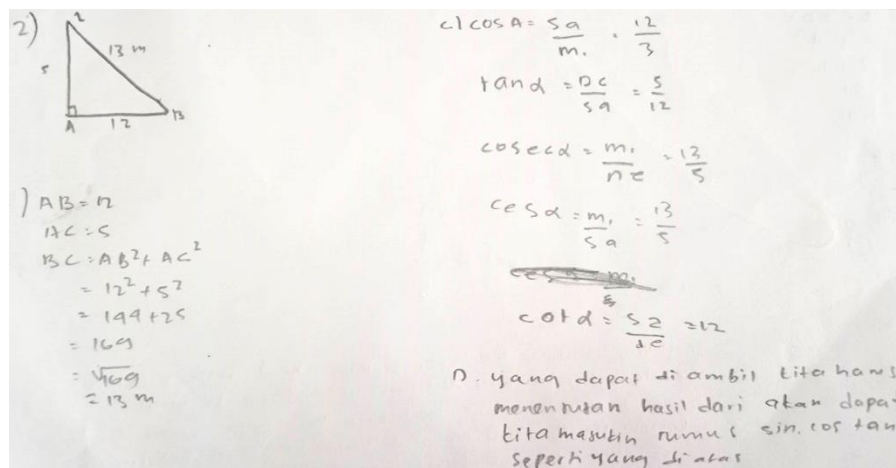 2)
2
13 m
5
A
12
B
) AB = 12
AC = 5
BC = AB² + AC²
= 12² + 5²
= 144 + 25
= 169
= √169
= 13 m
c) cos A = sa/m. = 12/3
tan α = De/sa = 5/12
cosec α = m,/ne = 13/5
ces α = m,/sa = 13/5
cot α = sa/de = 12
D. yang dapat di ambil kita harus
menentukan hasil dari akan dapa
kita masukin rumus sin. cos tan
seperti yang di atas